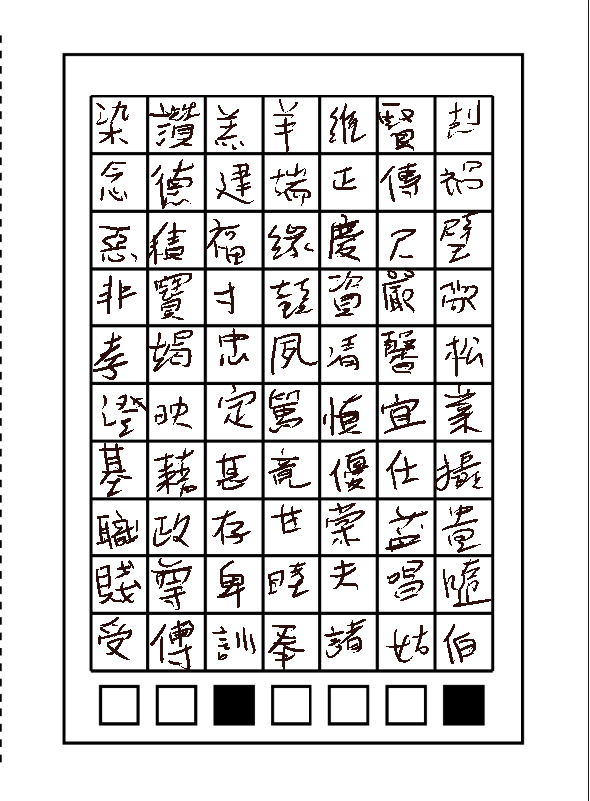 染讚羔羊維賢剋
念德建端正傳禍
惡積福緣慶尺璧
非寶寸競資嚴敬
孝竭忠夙凊馨松
澄映定篤慎宜業
基藉甚竟優仕攝
職政存甘棠益貴
賤尊卑睦夫唱隨
受傅訓奉諸姑伯